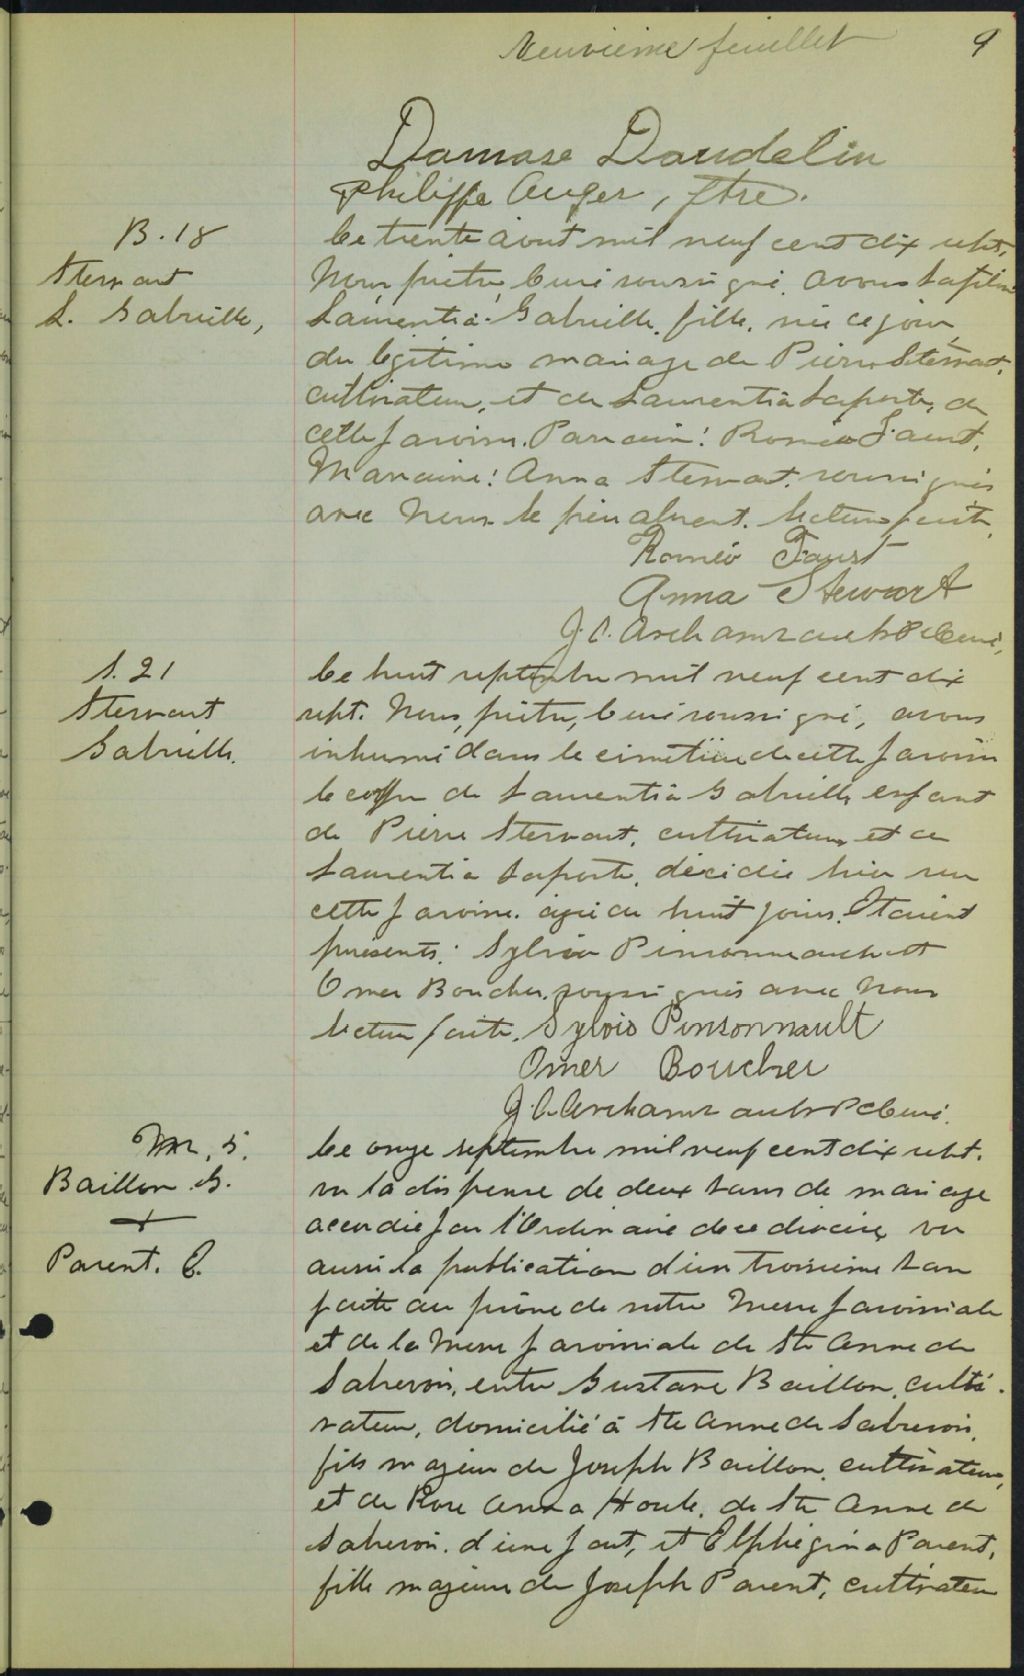 Neuvième feuillet 9
Damase Daudelin
Philippe Auger, ptre.
B. 18
Stewart
L. Gabrielle,
Le trente août mil neuf cent dix sept,
Nous, prêtre, Curé soussigné, avons baptisé
Laurentia-Gabrielle, fille, née ce jour
du légitime mariage de Pierre Stewart,
cultivateur, et de Laurentia Laporte, de
cette paroisse. Parrain: Roméo Faust,
Marraine: Anna Stewart, soussignés
avec Nous le père absent. Lecture faite.
Roméo Faust
Anna Stewart
J. A. Archambault Ptre Curé,
S. 21
Stewart
Gabrielle.
Le huit septembre mil neuf cent dix
sept. Nous, prêtre, Curé soussigné, avons
inhumé dans le cimetière de cette paroisse
le corps de Laurentia Gabrielle enfant
de Pierre Stewart, cultivateur et de
Laurentia Laporte, décédée hier en
cette paroisse, âgée de huit jours. Étaient
présents: Sylvio Pinsonneault et
Omer Boucher, soussignés avec Nous
lecture faite. Sylvio Pinsonnault
Omer Boucher
J. A. Archambault Ptre Curé.
M. 5.
Baillon G.
+
Parent. E.
Le onze septembre mil neuf cent dix sept.
vu la dispense de deux bans de mariage
accordée par l'Ordinaire de ce diocèse, vu
aussi la publication d'un troisième ban
faite au prône de notre Messe paroissiale
et de la Messe paroissiale de Ste Anne de
Sabrevois, entre Gustave Baillon, culti-
vateur, domicilié à Ste Anne de Sabrevois,
fils majeur de Joseph Baillon, cultivateur,
et de Rose Anna Houle, de Ste Anne de
Sabrevois, d'une part, et Elphégina Parent,
fille majeure de Joseph Parent, cultivateur